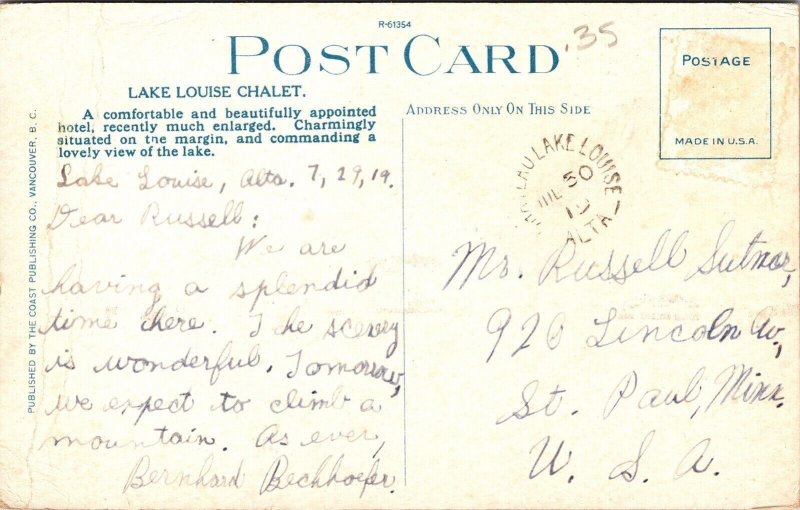 R-61354
POST CARD
.35
LAKE LOUISE CHALET.
A comfortable and beautifully appointed
hotel, recently much enlarged. Charmingly
situated on the margin, and commanding a
lovely view of the lake.
ADDRESS ONLY ON THIS SIDE
POSTAGE
MADE IN U.S.A.
PUBLISHED BY THE COAST PUBLISHING CO., VANCOUVER, B. C.
LAKE LOUISE
30
19
ALTA
Lake Louise, Alta. 7, 29, 19.
Dear Russell:
We are
having a splendid
time here. The scenery
is wonderful. Tomorrow,
we expect to climb a
mountain. As ever,
Bernhard Bechhoefer.
Mr. Russell Sutnor,
920 Lincoln Av,
St. Paul, Minn.
U. S. A.